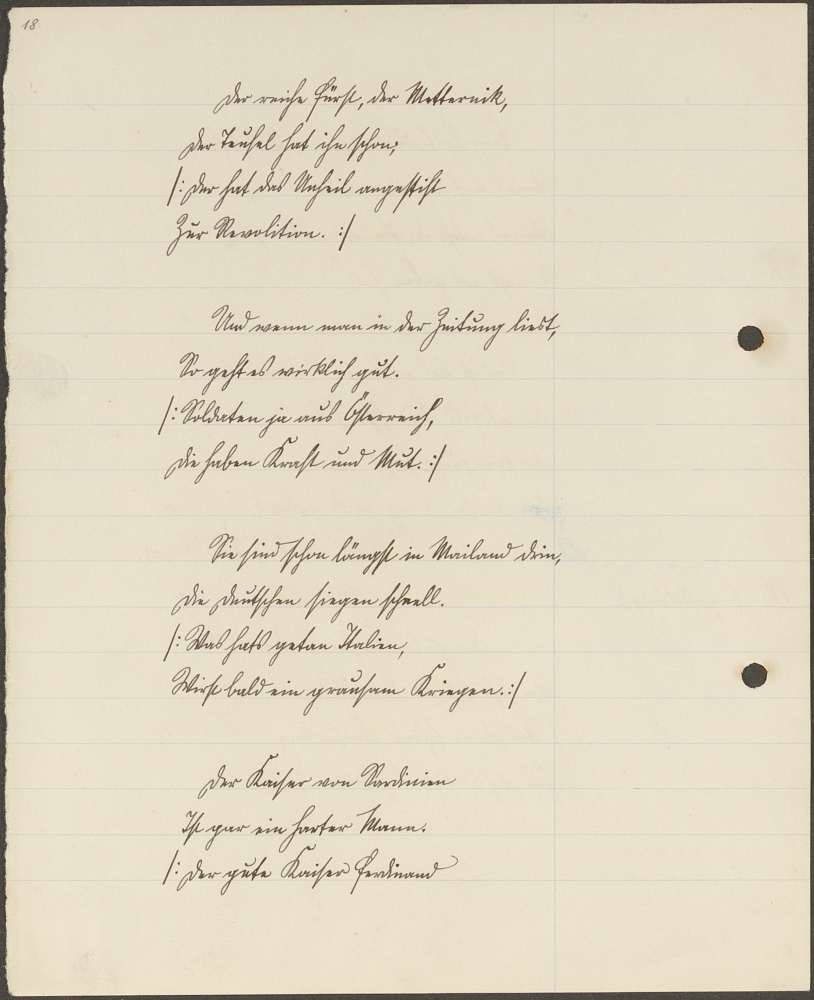 18
Der reiche Fürst, der Metternik,
Der Teufel hat ihn schon;
/: Der hat das Unheil angestift
Zur Revolition. :/
Und wenn man in der Zeitung liest,
So geht es wirklich gut.
/: Soldaten ja aus Österreich,
Die haben Kraft und Mut. :/
Sie sind schon längst in Mailand drin,
Die Deutschen siegen schnell.
/: Was hats getan Italien,
Wirst bald ein grausam Kriegen. :/
Der Kaiser von Sardinien
Ist gar ein harter Mann.
/: Der gute Kaiser Ferdinand